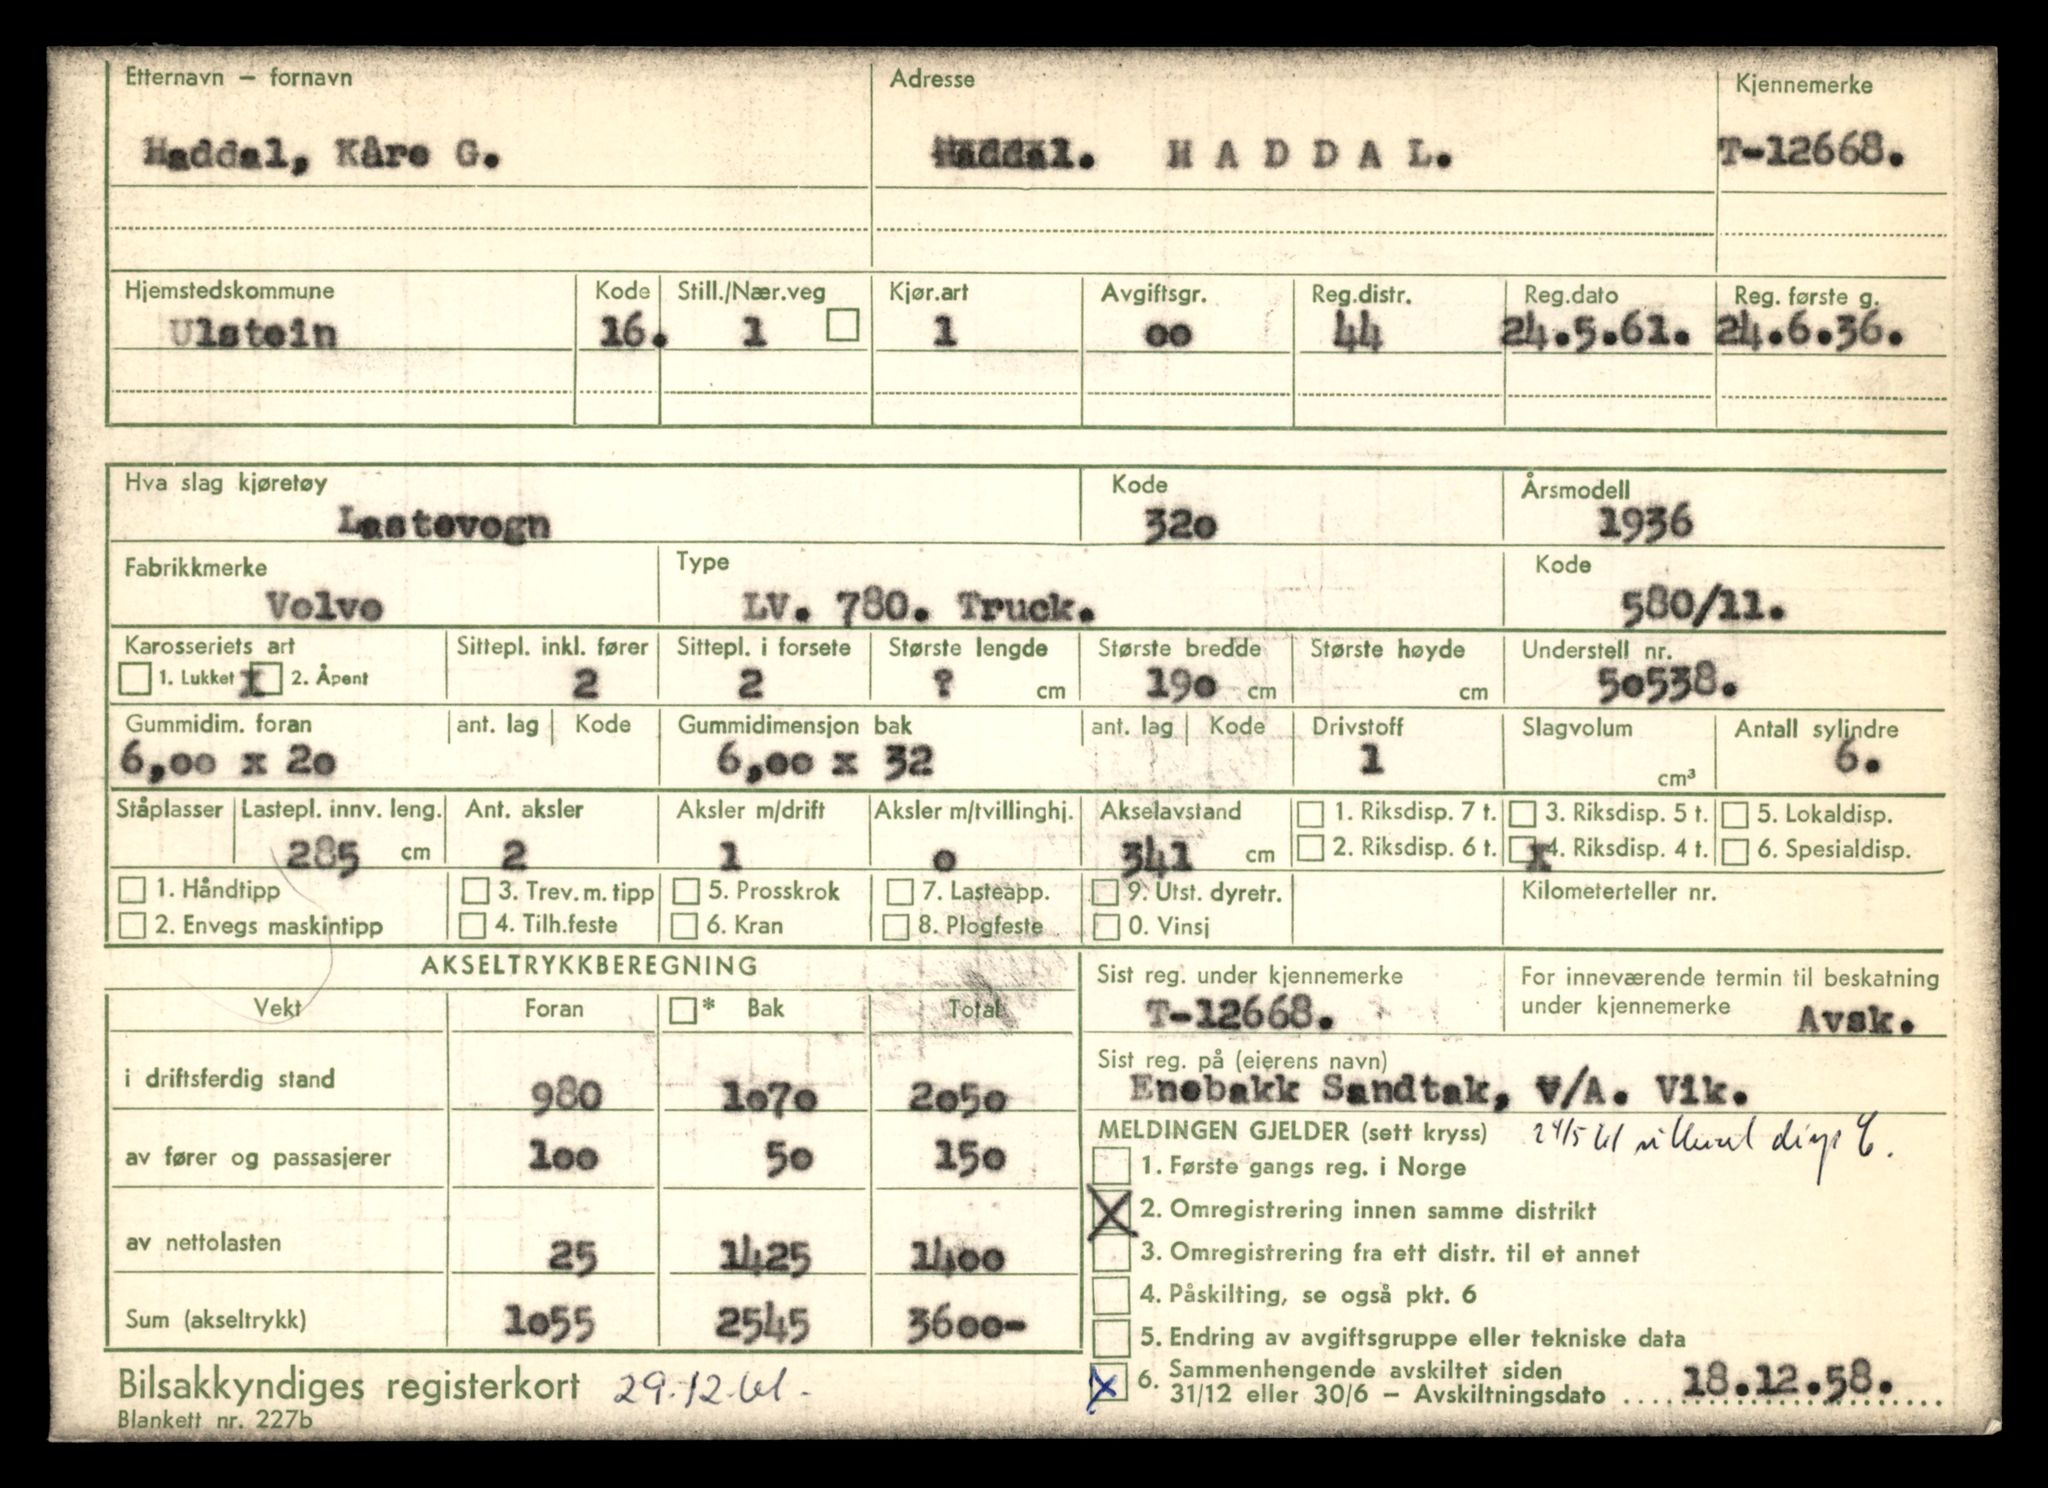 Etternavn – fornavn Adresse Kjennemerke
Haddal, Kåre G. Haddal. H A D D A L. T-12668.
Hjemstedskommune Kode Still./Nær.veg Kjør.art Avgiftsgr. Reg.distr. Reg.dato Reg. første g.
Ulstein 16. 1 1 oo 44 24.5.61. 24.6.36.
Hva slag kjøretøy Kode Årsmodell
Lastevogn 32o 1936
Fabrikkmerke Type Kode
Volvo LV. 780. Truck. 580/11.
Karosseriets art Sittepl. inkl. fører Sittepl. i forsete Største lengde Største bredde Største høyde Understell nr.
1. Lukket x 2. Åpent 2 2 ? cm 19o cm cm 5o538.
Gummidim. foran ant. lag Kode Gummidimensjon bak ant. lag Kode Drivstoff Slagvolum Antall sylindre
6,oo x 2o 6,oo x 32 1 cm³ 6.
Ståplasser Lastepl. innv. leng. Ant. aksler Aksler m/drift Aksler m/tvillinghj. Akselavstand 1. Riksdisp. 7 t. 3. Riksdisp. 5 t. 5. Lokaldisp.
285 cm 2 1 o 341 cm 2. Riksdisp. 6 t. x 4. Riksdisp. 4 t. 6. Spesialdisp.
1. Håndtipp 3. Trev. m. tipp 5. Prosskrok 7. Lasteapp. 9. Utst. dyretr. Kilometerteller nr.
2. Envegs maskintipp 4. Tilh.feste 6. Kran 8. Plogfeste 0. Vinsj
AKSELTRYKKBEREGNING
Vekt Foran * Bak Total
i driftsferdig stand 980 1o7o 2o5o
av fører og passasjerer 1oo 5o 15o
av nettolasten 25 1425 14oo
Sum (akseltrykk) 1o55 2545 36oo-
Bilsakkyndiges registerkort 29.12.61.
Blankett nr. 227b
Sist reg. under kjennemerke For inneværende termin til beskatning
under kjennemerke
T-12668. Avsk.
Sist reg. på (eierens navn)
Enebakk Sandtak, v/A. Vik.
MELDINGEN GJELDER (sett kryss) 24/5 61
1. Første gangs reg. i Norge
X 2. Omregistrering innen samme distrikt
3. Omregistrering fra ett distr. til et annet
4. Påskilting, se også pkt. 6
5. Endring av avgiftsgruppe eller tekniske data
x 6. Sammenhengende avskiltet siden
31/12 eller 30/6 – Avskiltningsdato 18.12.58.